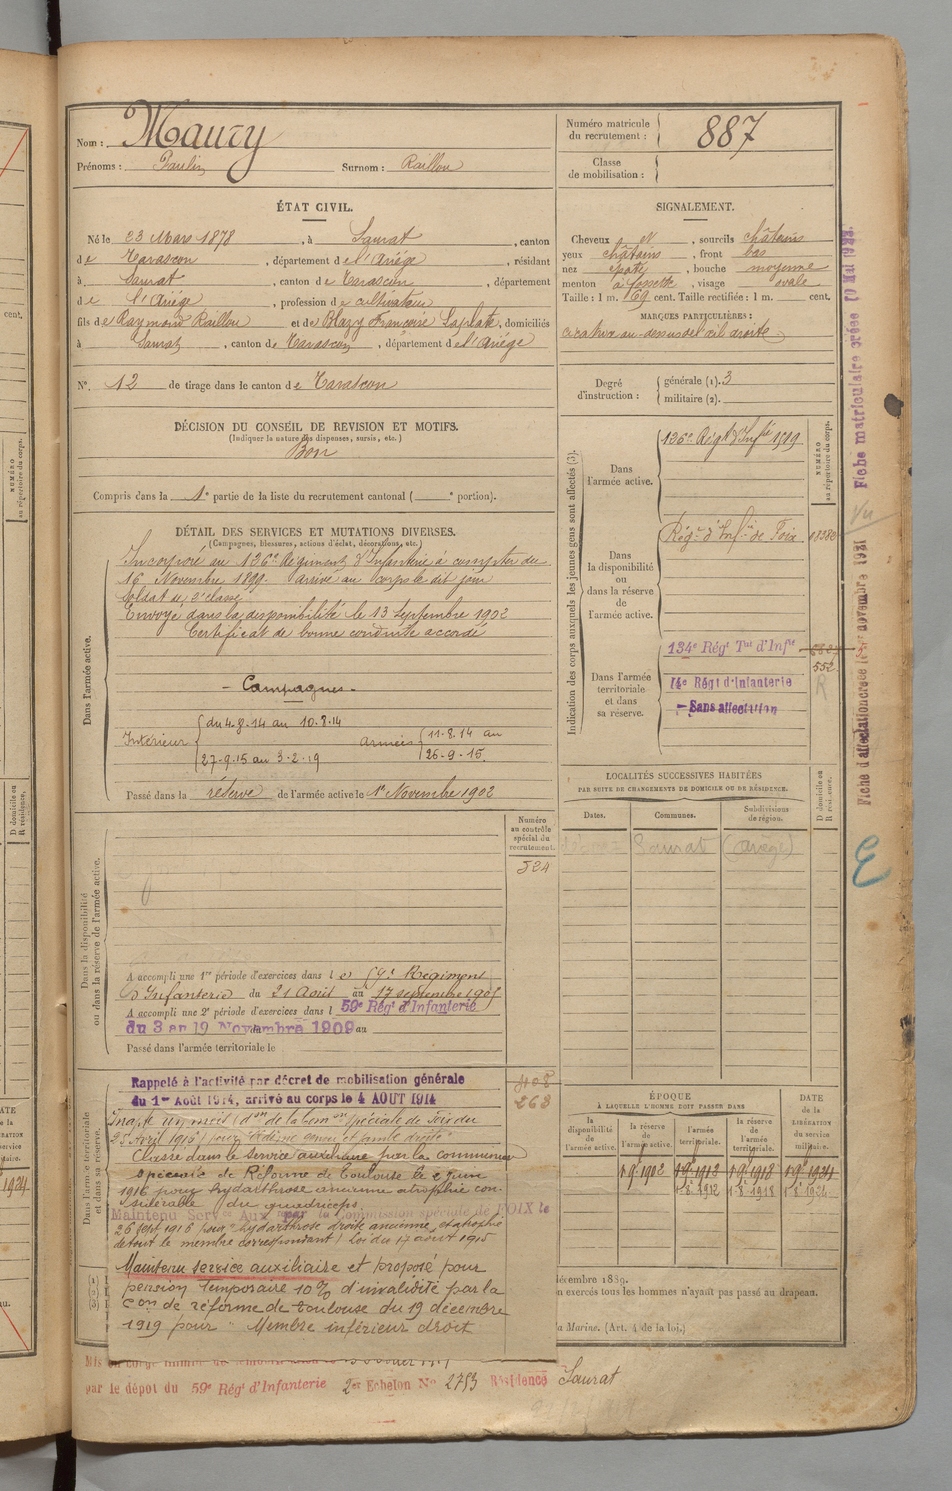 Nom : Maury
Prénoms : Paulin Surnom : Raillou
Numéro matricule du recrutement : 887
Classe de mobilisation :
ÉTAT CIVIL.
Né le 23 Mars 1878, à Saurat, canton
de Tarascon, département de l'Ariège, résidant
à Saurat, canton de Tarascon, département
de l'Ariège, profession de cultivateur
fils de Raymond Raillou et de Blazy Françoise, domiciliés
à Saurat, canton de Tarascon, département de l'Ariège
N° 12 de tirage dans le canton de Tarascon
SIGNALEMENT.
Cheveux N, sourcils châtains
yeux châtains, front bas
nez épaté, bouche moyenne
menton à fossette, visage ovale
Taille : 1 m. 69 cent. Taille rectifiée : 1 m. cent.
MARQUES PARTICULIÈRES :
cicatrice au-dessus de l'œil droite
Degré d'instruction : générale (1). 3
militaire (2).
DÉCISION DU CONSEIL DE REVISION ET MOTIFS.
(Indiquer la nature des dispenses, sursis, etc.)
Bon
Compris dans la 1e partie de la liste du recrutement cantonal ( e portion).
DÉTAIL DES SERVICES ET MUTATIONS DIVERSES.
(Campagnes, blessures, actions d'éclat, décorations, etc.)
Dans l'armée active.
Incorporé au 126e Régiment d'Infanterie à compter du
16 Novembre 1899. Arrivé au corps le dit jour
Soldat de 2e classe
Envoyé dans la disponibilité le 13 Septembre 1902
Certificat de bonne conduite accordé
- Campagnes -
Intérieur du 4-8-14 au 10.8.14
27-9.15 au 3-2-19
armées 11-8.14 au
26-9-15.
Passé dans la réserve de l'armée active le 1er Novembre 1902
Indication des corps auxquels les jeunes gens sont affectés (3).
NUMÉRO au répertoire du corps.
Dans l'armée active.
126e Régt d'Infie
Dans la disponibilité ou dans la réserve de l'armée active.
Régt d'Infie de Foix
Dans l'armée territoriale et dans sa réserve.
134e Régt Tal d'Infie
552
R
14e Régt d'Infanterie
- Sans affectation
LOCALITÉS SUCCESSIVES HABITÉES
PAR SUITE DE CHANGEMENTS DE DOMICILE OU DE RÉSIDENCE.
D domicile ou R résidence.
Dates. Communes. Subdivisions de région.
Saurat (Ariège)
Dans la disponibilité ou dans la réserve de l'armée active.
Numéro au contrôle spécial du recrutement.
524
A accompli une 1re période d'exercices dans le 59e Régiment
d'Infanterie du 21 Août au 17 septembre 1905
A accompli une 2e période d'exercices dans l 59e Régt d'Infanterie
du 3 au 19 Novembre 1909 au
Passé dans l'armée territoriale le
Dans l'armée territoriale et dans sa réserve.
Rappelé à l'activité par décret de mobilisation générale
du 1er Août 1914, arrivé au corps le 4 AOUT 1914
408
263
Classé dans le service auxiliaire par la commission
spéciale de Réforme de Toulouse le 2 juin
1916 pour hydarthrose ancienne atrophie con-
sidérable du quadriceps.
Maintenu Serv ce Aux par la Commission spéciale de FOIX le
26 sept 1916 pour "hydarthrose droite ancienne, et atrophie
de tout le membre correspondant" Loi du 17 août 1915
Maintenu service auxiliaire et proposé pour
pension temporaire 10% d'invalidité par la
Con de réforme de Toulouse du 19 décembre
1919 pour "Membre inférieur droit
ÉPOQUE
À LAQUELLE L'HOMME DOIT PASSER DANS
DATE de la LIBÉRATION du service militaire.
la disponibilité de l'armée active.
la réserve de l'armée active.
l'armée territoriale.
la réserve de l'armée territoriale.
1.9.1902 1.9.1912 1.9.1918 1.9.1924
1.8.1912 1.8.1918 1.8.1924
décembre 1889.
n exercés tous les hommes n'ayant pas passé au drapeau.
a Marine. (Art. 4 de la loi.)
par le dépôt du 59e Régt d'Infanterie 2er Echelon No 2753 Résidence Saurat
Fiche matriculaire créée
Fiche d'affectation créée le novembre 1921
Vu
E